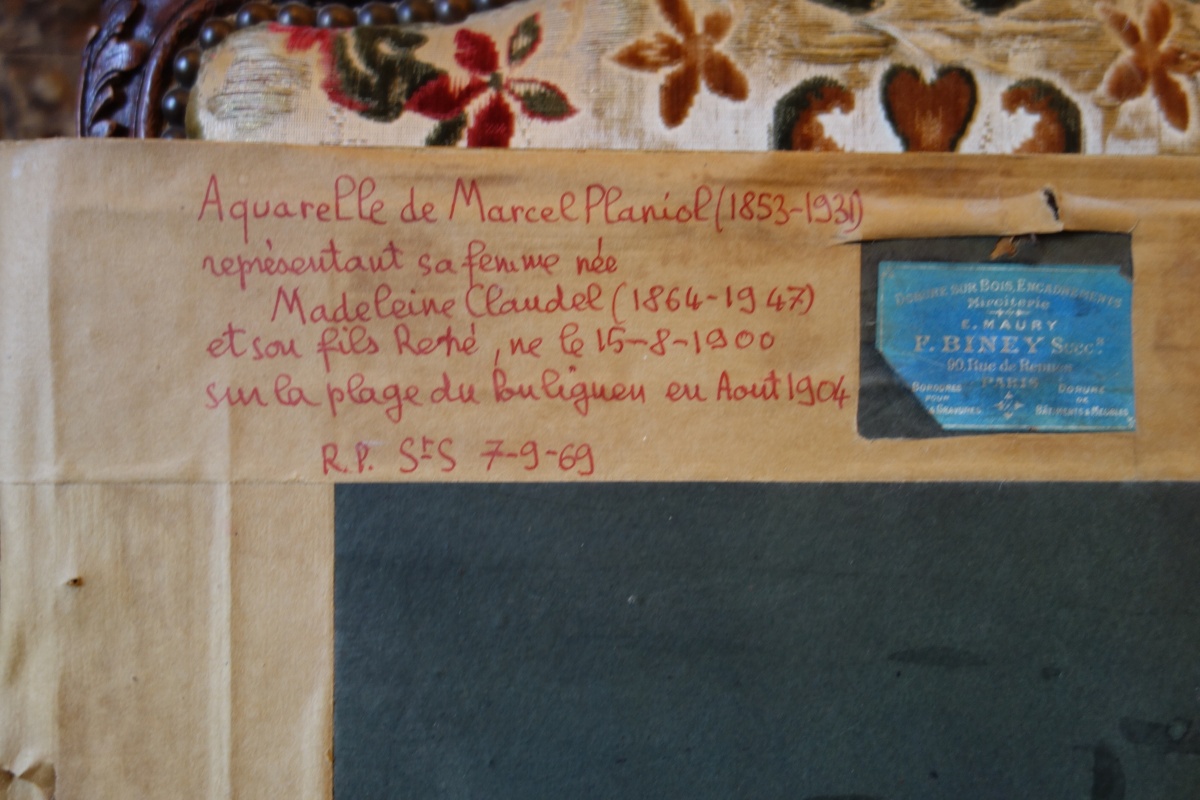 Aquarelle de Marcel Planiol (1853-1931)
représentant sa femme née
Madeleine Claudel (1864-1947)
et son fils René, ne le 15-8-1900
sur la plage du Pouliguen en Aout 1904
R.P. Sr S 7-9-69
DORURE SUR BOIS, ENCADREMENTS
Miroiterie
E. MAURY
F. BINEY Succr
90, Rue de Rennes
PARIS
BORDURES POUR GRAVURES
DORURE DE BÂTIMENTS & MEUBLES